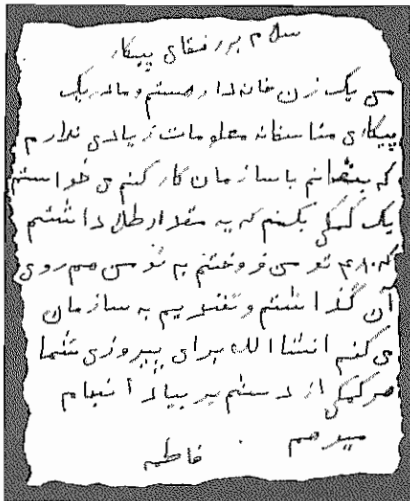 سلام بر رفقای پیکار
من یک زن خانه‌دار هستم و مادر یک
پیکاری متاسفانه معلومات زیادی ندارم
که بتوانم با سازمان کار کنم می‌خواستم
یک کمکی بکنم که یه مقدار طلا داشتم
که ۴۰۸۰ تومن فروختم یه تومن هم روی
آن گذاشتم و تقدیم به سازمان
می کنم انشاالله برای پیروزی شما
هر کمکی از دستم بر بیاد انجام
میدهم
فاطمه